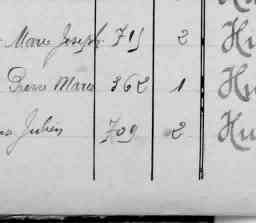 Marie Joseph 715 2 Hu
Pierre Marie 362 1 Hu
Julien 709 2 Hu